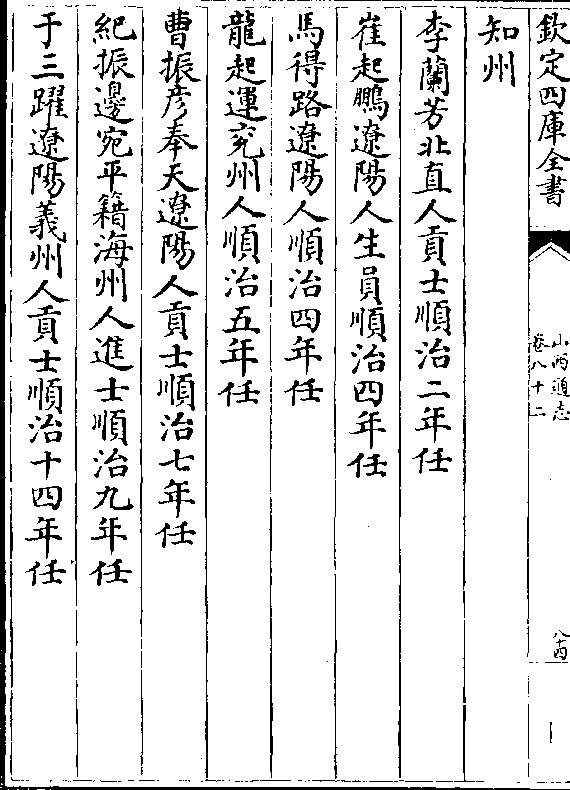 欽定四庫全書
山西通志
卷八十二
八十四
知州
李蘭芳北直人貢士順治二年任
崔起鵬遼陽人生員順治四年任
馬得路遼陽人順治四年任
龍起運兖州人順治五年任
曹振彦奉天遼陽人貢士順治七年任
紀振邊宛平籍海州人進士順治九年任
于三躍遼陽義州人貢士順治十四年任